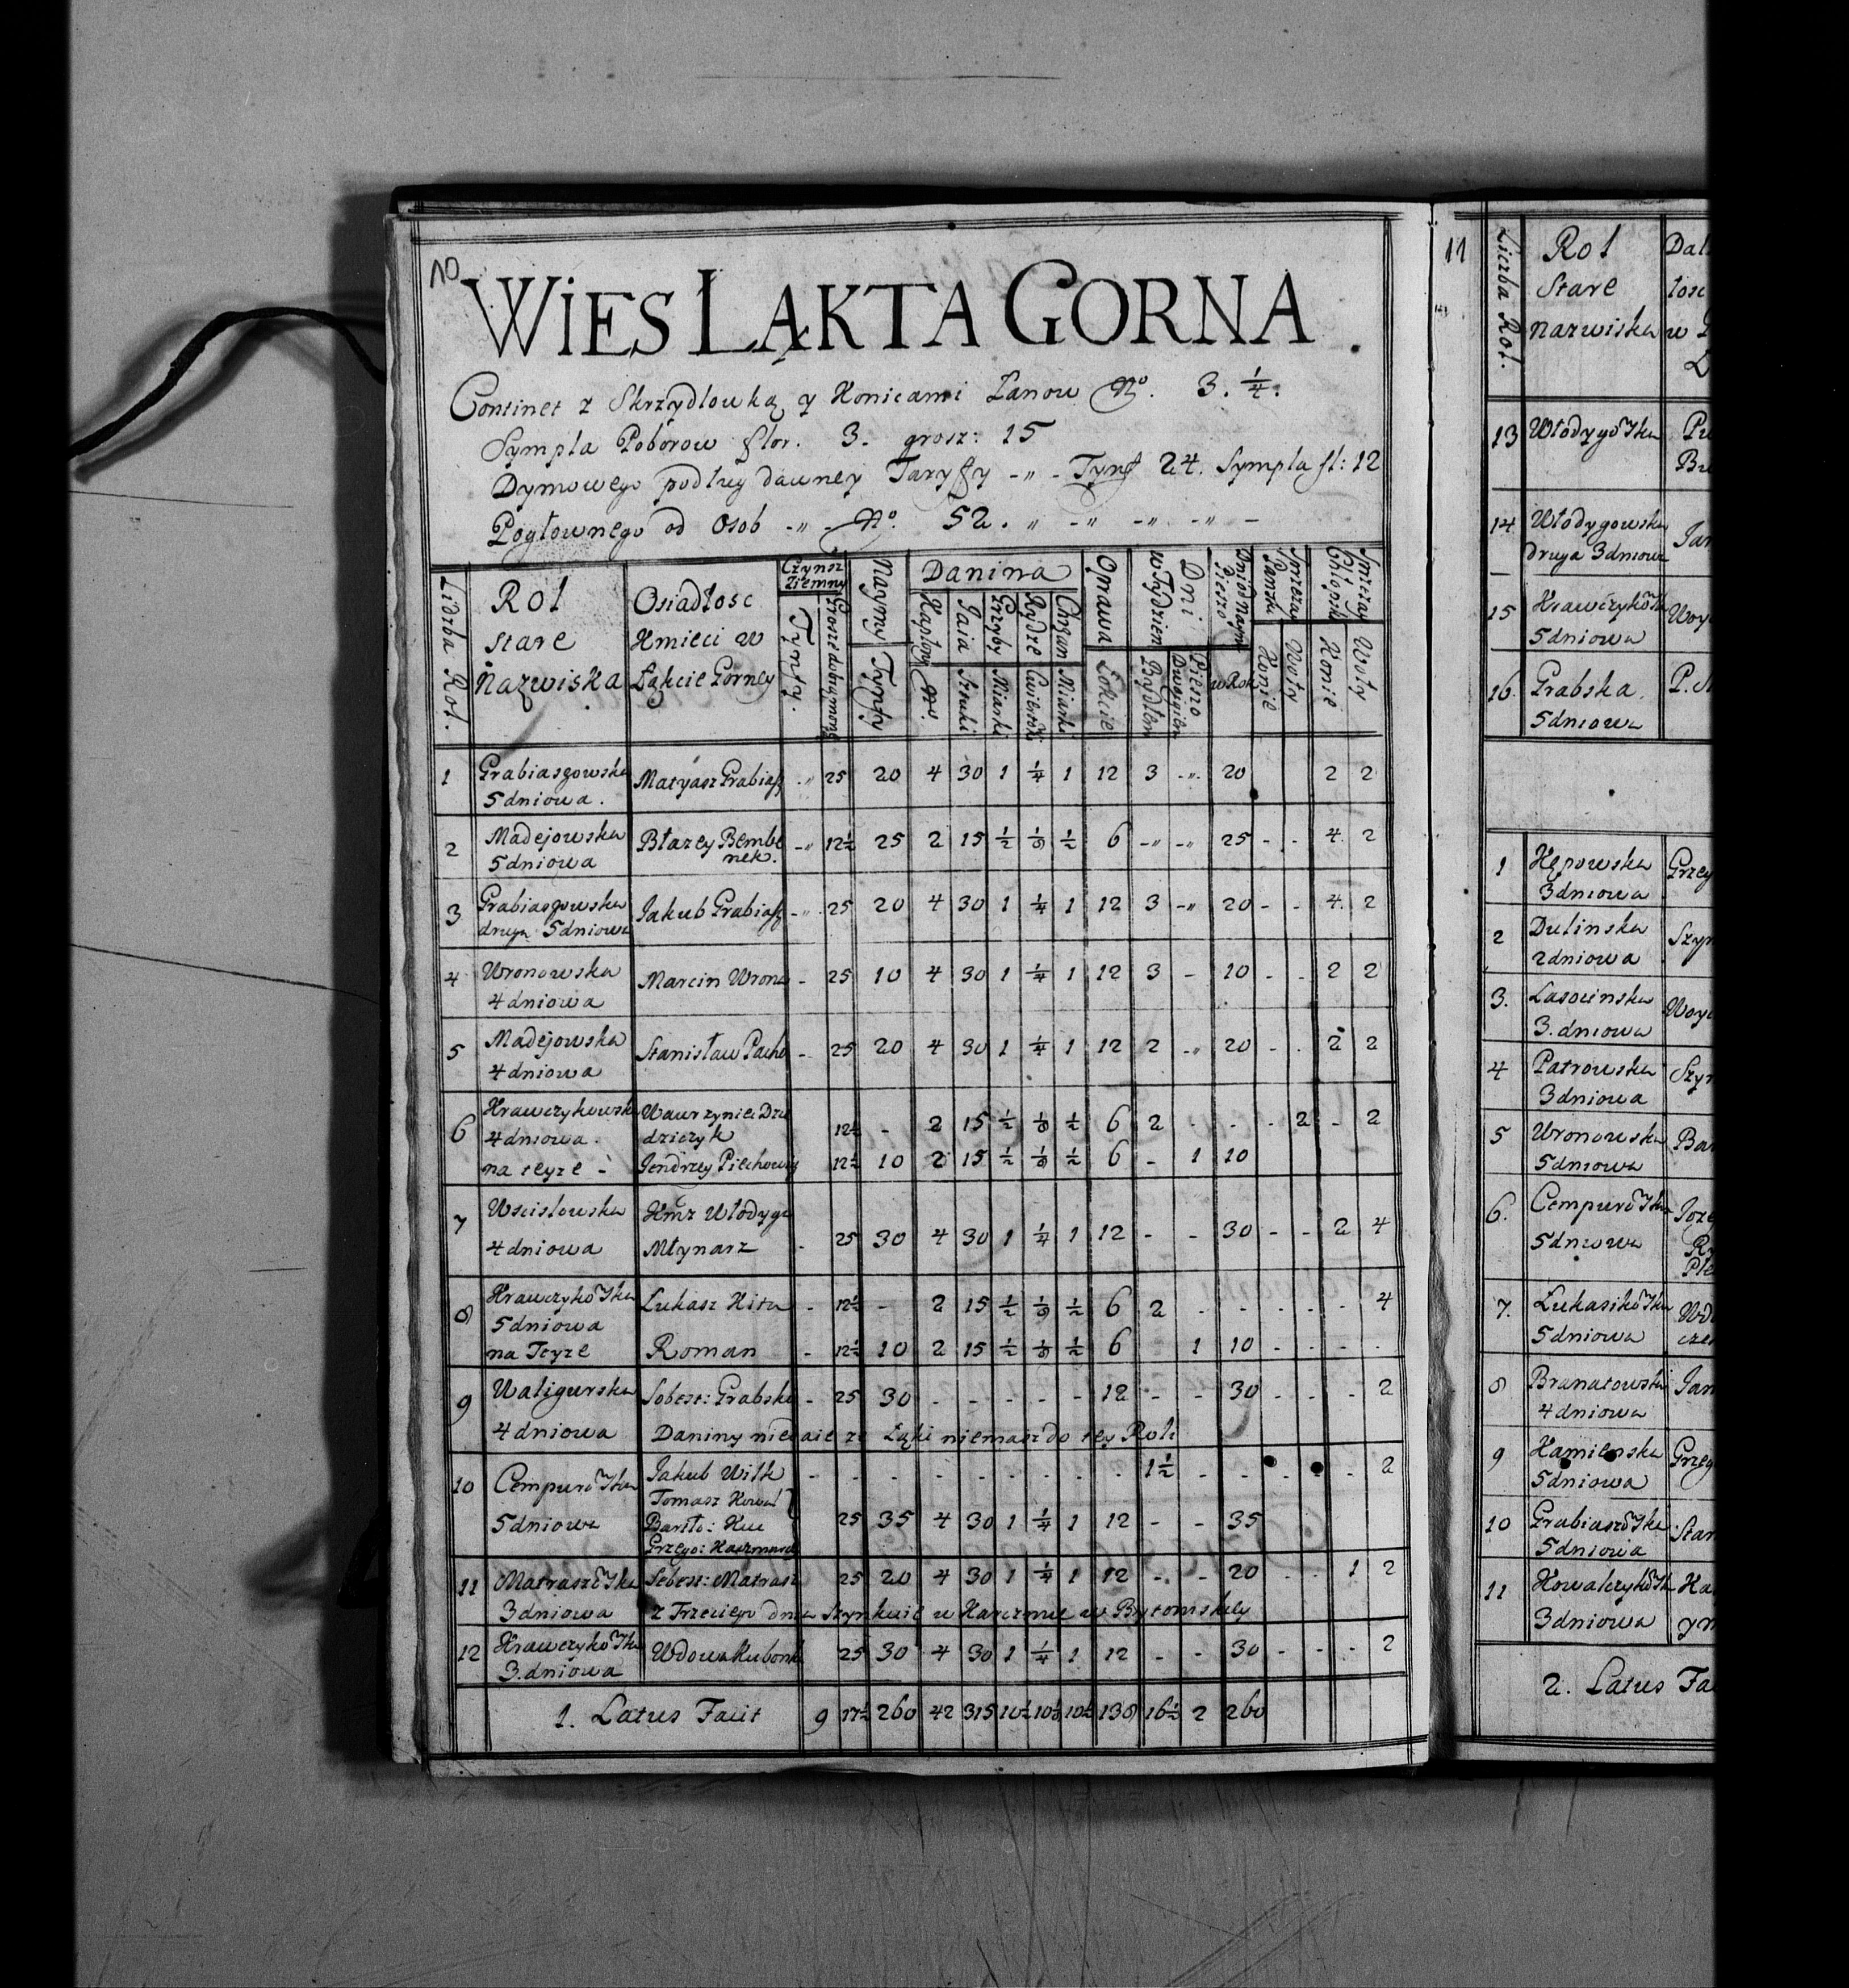 10
WiES ŁĄKTA GORNA.
Continet z Skrzydlowką y Konicami Łanow No. 3. 1/4.
Sympla Poborow flor. 3. grosz: 15
Dymowego podług dawney Taryffy -"- Tynf 24. Sympla fl: 12
Pogłownego od Osob -"- No. 52. " -" -" -" -
Liczba Rol. | Rol stare Nazwiska | Osiadłosc Kmieci w Łąkcie Gorney | Czynsz Ziemny | Tynfy. | Grosze dobrą monetą | Najymy Tynfy | Danina | Kapłony No. | Jaia Sztuki | Grzyby Miarki | Rydze | Chrzan Miarki | Oprawa Łokcie | Dni w Tydzien | Bydłem | Pieszo | w Rok | Sprzężay Panski | Konie | Woły | Sprzężay Chłopski | Konie | Woły
1 | Grabiaszowska 5 dniowa. | Matyasz Grabiasz | " | 25 | 20 | 4 | 30 | 1 | 1/4 | 1 | 12 | 3 | -"- | 20 | 2 | 2
2 | Madejowska 5 dniowa | Błazey Bembenek. | -" | 12 1/2 | 25 | 2 | 15 | 1/2 | 1/8 | 1/2 | 6 | -"- | -"- | 25 | - | - | 4 | 2
3 | Grabiaszowska druga 5 dniowa | Jakub Grabiasz | -" | 25 | 20 | 4 | 30 | 1 | 1/4 | 1 | 12 | 3 | -" | 20 | - | - | 4 | 2
4 | Wronowska 4 dniowa | Marcin Wrona | - | 25 | 10 | 4 | 30 | 1 | 1/4 | 1 | 12 | 3 | - | 10 | - | - | 2 | 2
5 | Madejowska 4 dniowa | Stanisław Pacho | - | 25 | 20 | 4 | 30 | 1 | 1/4 | 1 | 12 | 2 | -" | 20 | - | . | 2 | 2
6 | Krawczykowska 4 dniowa. | Wawrzyniec Dzie dziczyk | 12 1/2 | - | 2 | 15 | 1/2 | 1/8 | 1/2 | 6 | 2 | . | . | . | 2 | - | 2
na teyze - | Jendrzey Piechowicz | 12 1/2 | 10 | 2 | 15 | 1/2 | 1/8 | 1/2 | 6 | - | 1 | 10
7 | Wscislowska 4 dniowa | Kmz Włodyga Młynarz | - | 25 | 30 | 4 | 30 | 1 | 1/4 | 1 | 12 | - | - | 30 | - | - | 2 | 4
8 | Krawczykoska 5 dniowa | Łukasz Kita | - | 12 1/2 | - | 2 | 15 | 1/2 | 1/8 | 1/2 | 6 | 2 | - | - | - | - | - | 4
na Teyze | Roman | - | 12 1/2 | 10 | 2 | 15 | 1/2 | 1/8 | 1/2 | 6 | 1 | 10 | - | - | - | .
9 | Waligurska 4 dniowa | Sobest: Grabski | - | 25 | 30 | - | - | - | - | - | 12 | - | - | 30 | - | - | - | 2
Daniny niedaie ze Łąki niemasz do tey Roli
10 | Cempuroska 5 dniowa | Jakub Wilk | - | - | - | - | - | - | - | - | - | 1 1/2 | - | - | - | - | - | 2
Tomasz Kowal
Bartło: Kuc | 25 | 35 | 4 | 30 | 1 | 1/4 | 1 | 12 | - | - | 35
Grzego: Kaczmarcz
11 | Matraszoska 3 dniowa | Sebest: Matrasz | 25 | 20 | 4 | 30 | 1 | 1/4 | 1 | 12 | - | - | 20 | - | 1 | 2
z Trzeciego dnia Szynkuie w Karczmie w Bytomskiey
12 | Krawczykoska 3. dniowa | Wdowa Kubonka | 25 | 30 | 4 | 30 | 1 | 1/4 | 1 | 12 | - | - | 30 | - | - | - | 2
1. Latus Facit | 9 | 17 1/2 | 260 | 42 | 315 | 10 1/2 | 10 1/2 | 138 | 16 1/2 | 2 | 260
11
Liczba Rol. | Rol Stare Nazwiska
13 | Włodygoska
14 | Włodygowska druga 3 dniowa | Jan
15 | Krawczykoska 5 dniowa | Woy
16. | Grabska. 5 dniowa | P.
1 | Kępowska 3 dniowa | Grzeg
2 | Dulinska 2 dniowa | Szym
3. | Lasocinska 3. dniowa | Woy
4 | Patrowska 3 dniowa | Szy
5 | Wronowska 5 dniowa | Bar
6. | Cempuroska 5 dniowa | Joze
7. | Łukasikoska 5 dniowa | Wdo
8 | Branatowska 4 dniowa | Jan
9 | Kamienska 5 dniowa | Grzeg
10 | Grabiaszoska 5 dniowa | Stan
11 | Kowalczykoska 3 dniowa | Ka
2. Latus Fa